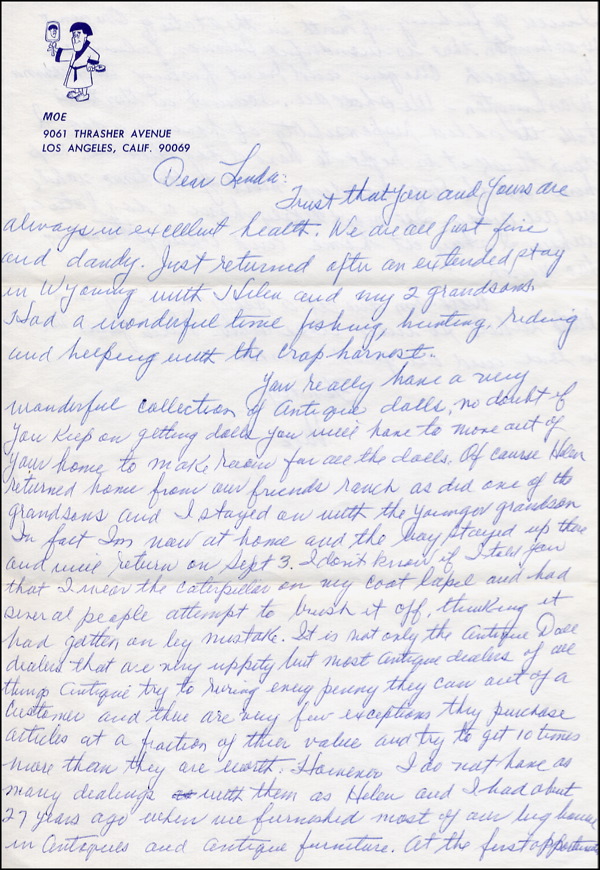 MOE
9061 THRASHER AVENUE
LOS ANGELES, CALIF. 90069
Dear Linda:
Trust that you and yours are
always in excellent health. We are all just fine
and dandy. Just returned after an extended stay
in Wyoming with Helen and my 2 grandsons.
Had a wonderful time fishing, hunting, riding
and helping with the crop harvest.
You really have a very
wonderful collection of Antique dolls, no doubt if
you keep on getting dolls you will have to move out of
your home to make room for all the dolls. Of course Helen
returned home from our friends ranch as did one of the
grandsons and I stayed on with the younger grandson
In fact I'm now at home and the boy stayed up there
and will return on Sept 3. I don't know if I told you
that I wear the caterpillar on my coat lapel and had
several people attempt to brush it off, thinking it
had gotten on by mistake. It is not only the Antique Doll
dealers that are very uppity but most Antique dealers of all
things Antique try to wring every penny they can out of a
customer and there are very few exceptions they purchase
articles at a fraction of thier value and try to get 10 times
more than they are worth. However I do not have as
many dealings with them as Helen and I had about
27 years ago when we furnished most of our big house
in Antiques and Antique furniture. At the first opportunity